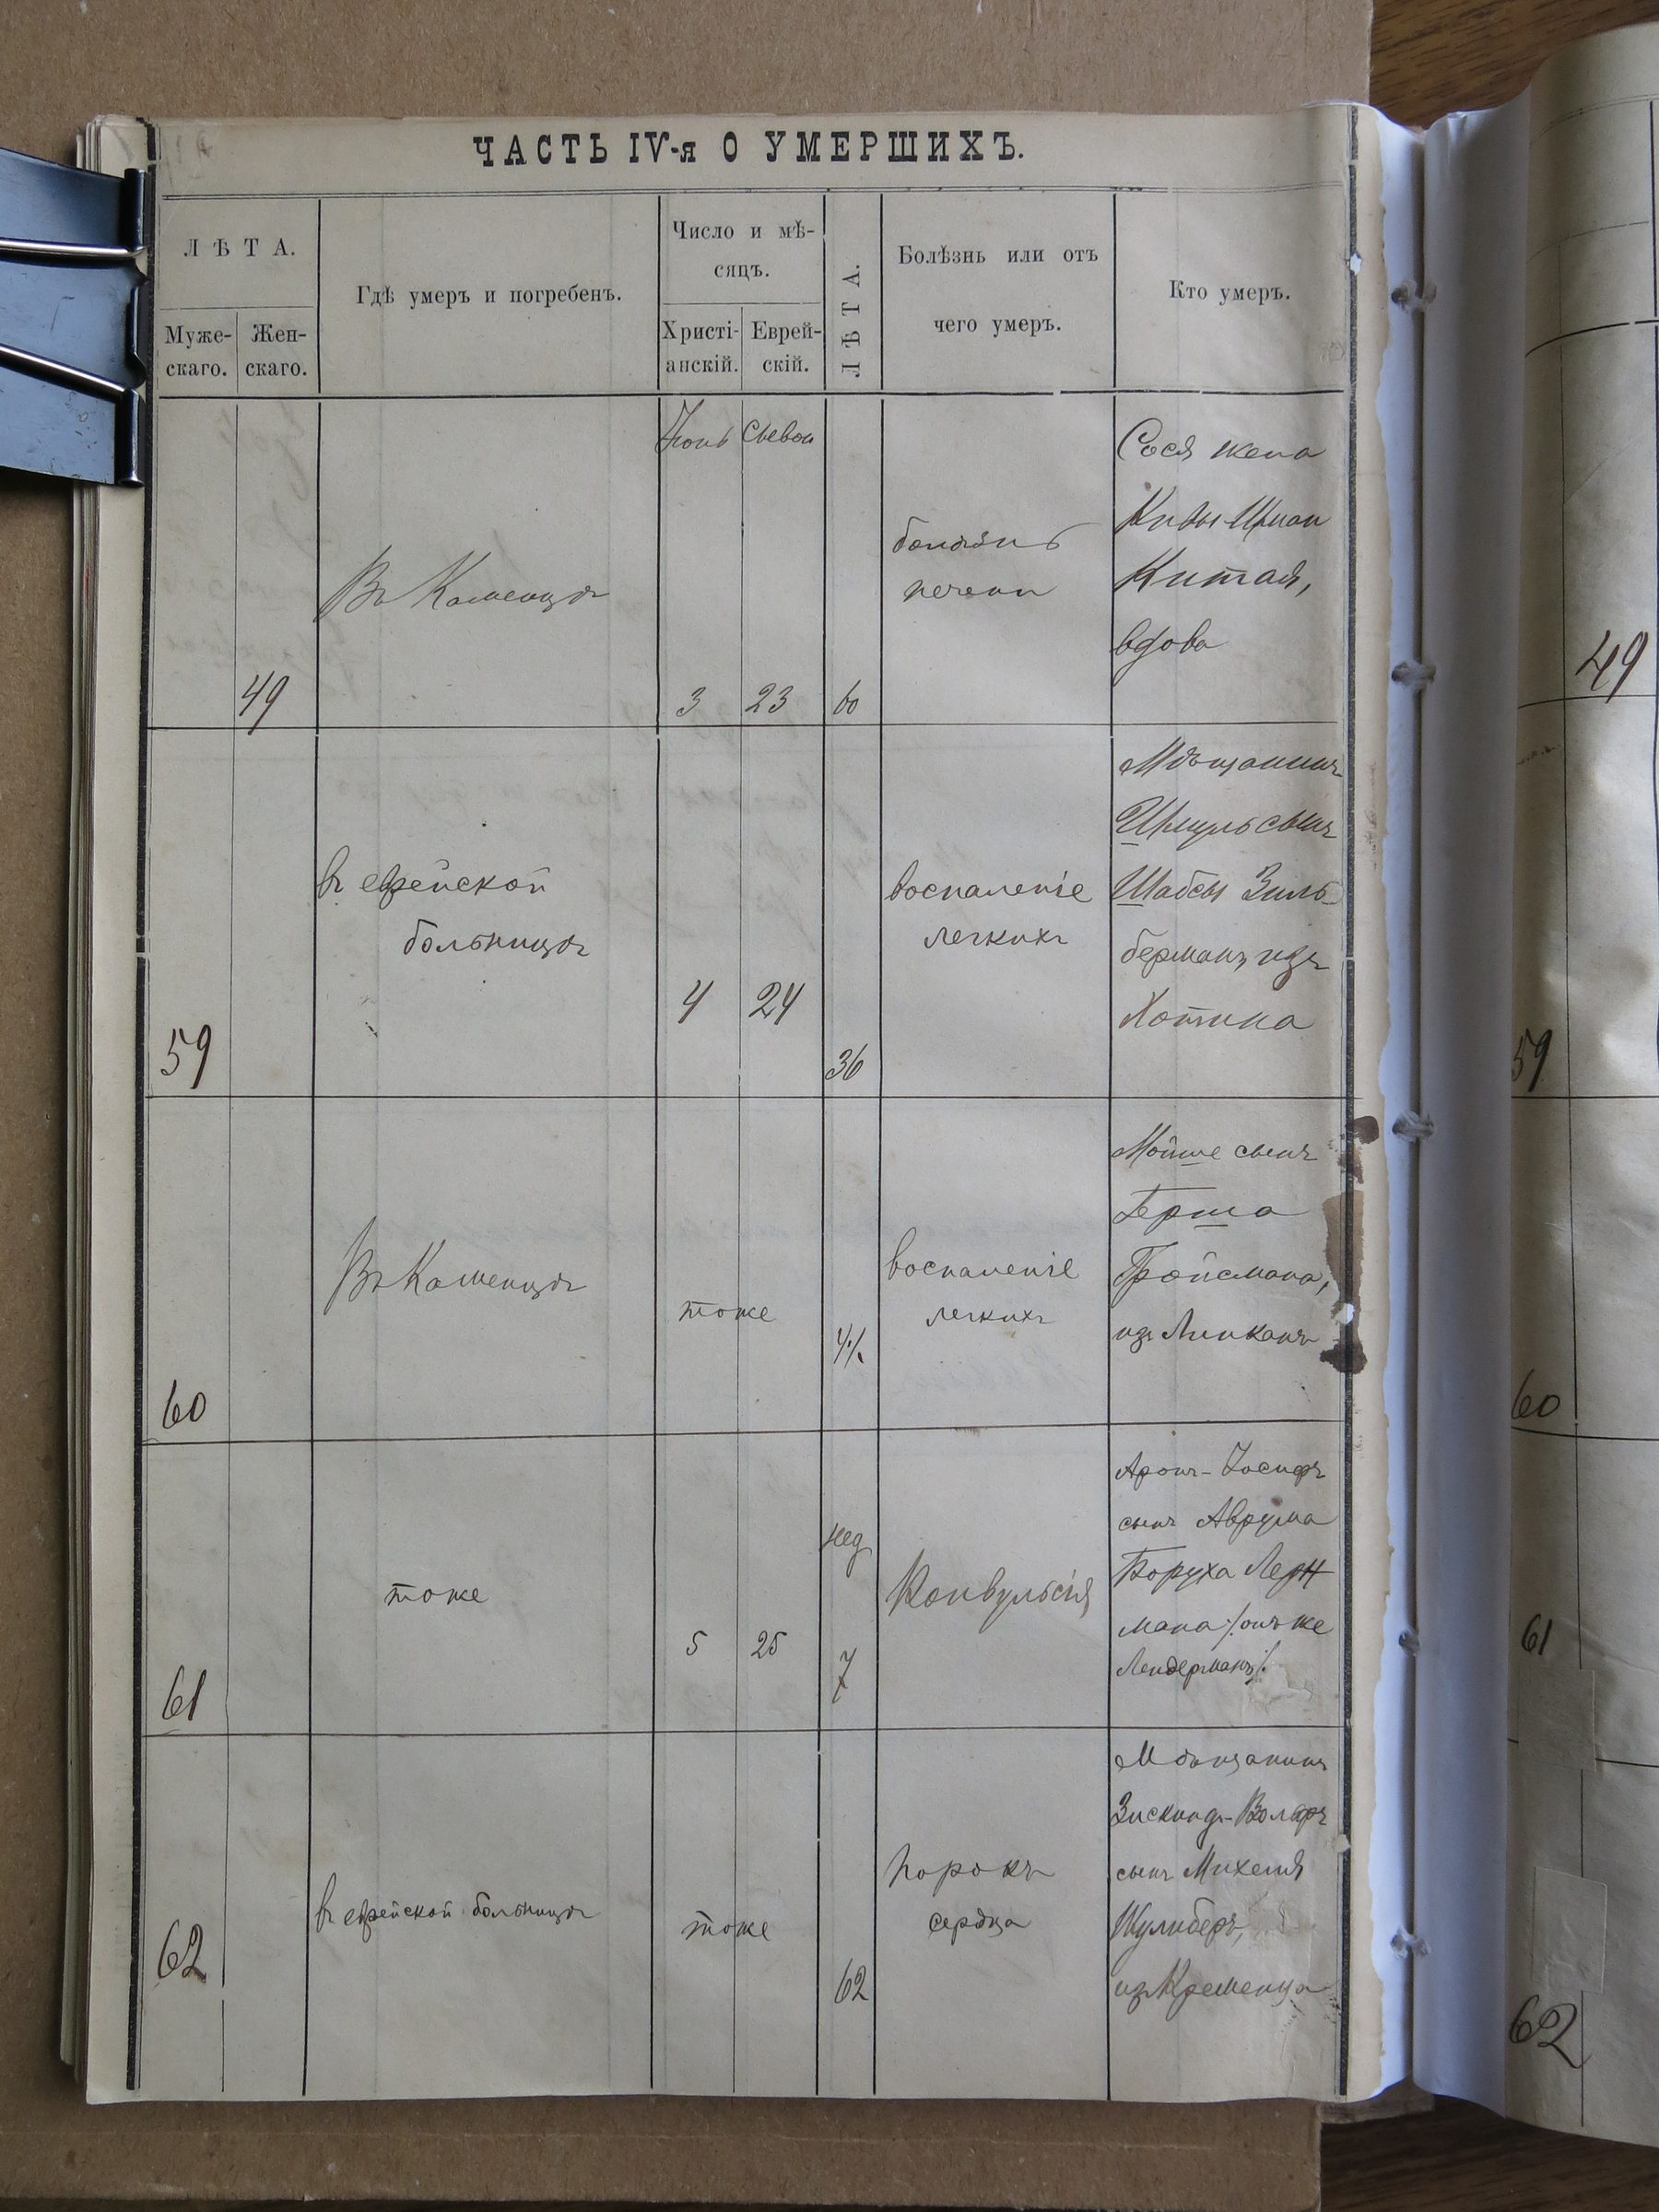 ЧАСТЬ IV-я О УМЕРШИХЪ.
ЛѢТА.
Муже-
скаго.
Жен-
скаго.
Гдѣ умеръ и погребенъ.
Число и мѣ-
сяцъ.
Христі-
анскій.
Еврей-
скій.
ЛѢТА.
Болѣзнь или отъ
чего умеръ.
Кто умеръ.
Іюнь
Сывон
49
Въ Каменцѣ
3
23
60
болѣзнь
печени
Сося жена
Китая,
вдова
49
59
въ еврейской
больницѣ
4
24
36
воспаленіе
легкихъ
Мѣщанинъ
Шмуль сынъ
Шабсы Зиль-
берманъ, изъ
Хотина
59
60
Въ Каменцѣ
тоже
воспаленіе
легкихъ
Мойше сынъ
Герша
Гройсмана,
изъ Липканъ
60
61
тоже
5
25
нед
7
Конвульсія
Аронъ-Іосифъ
сынъ Аврума
Боруха Лерн
мана /:онъ же
Лендерманъ/:
61
62
въ еврейской больницѣ
тоже
62
порокъ
сердца
Мѣщанинъ
Зискинд-Вольфъ
сынъ Михеля
из Кременца
62